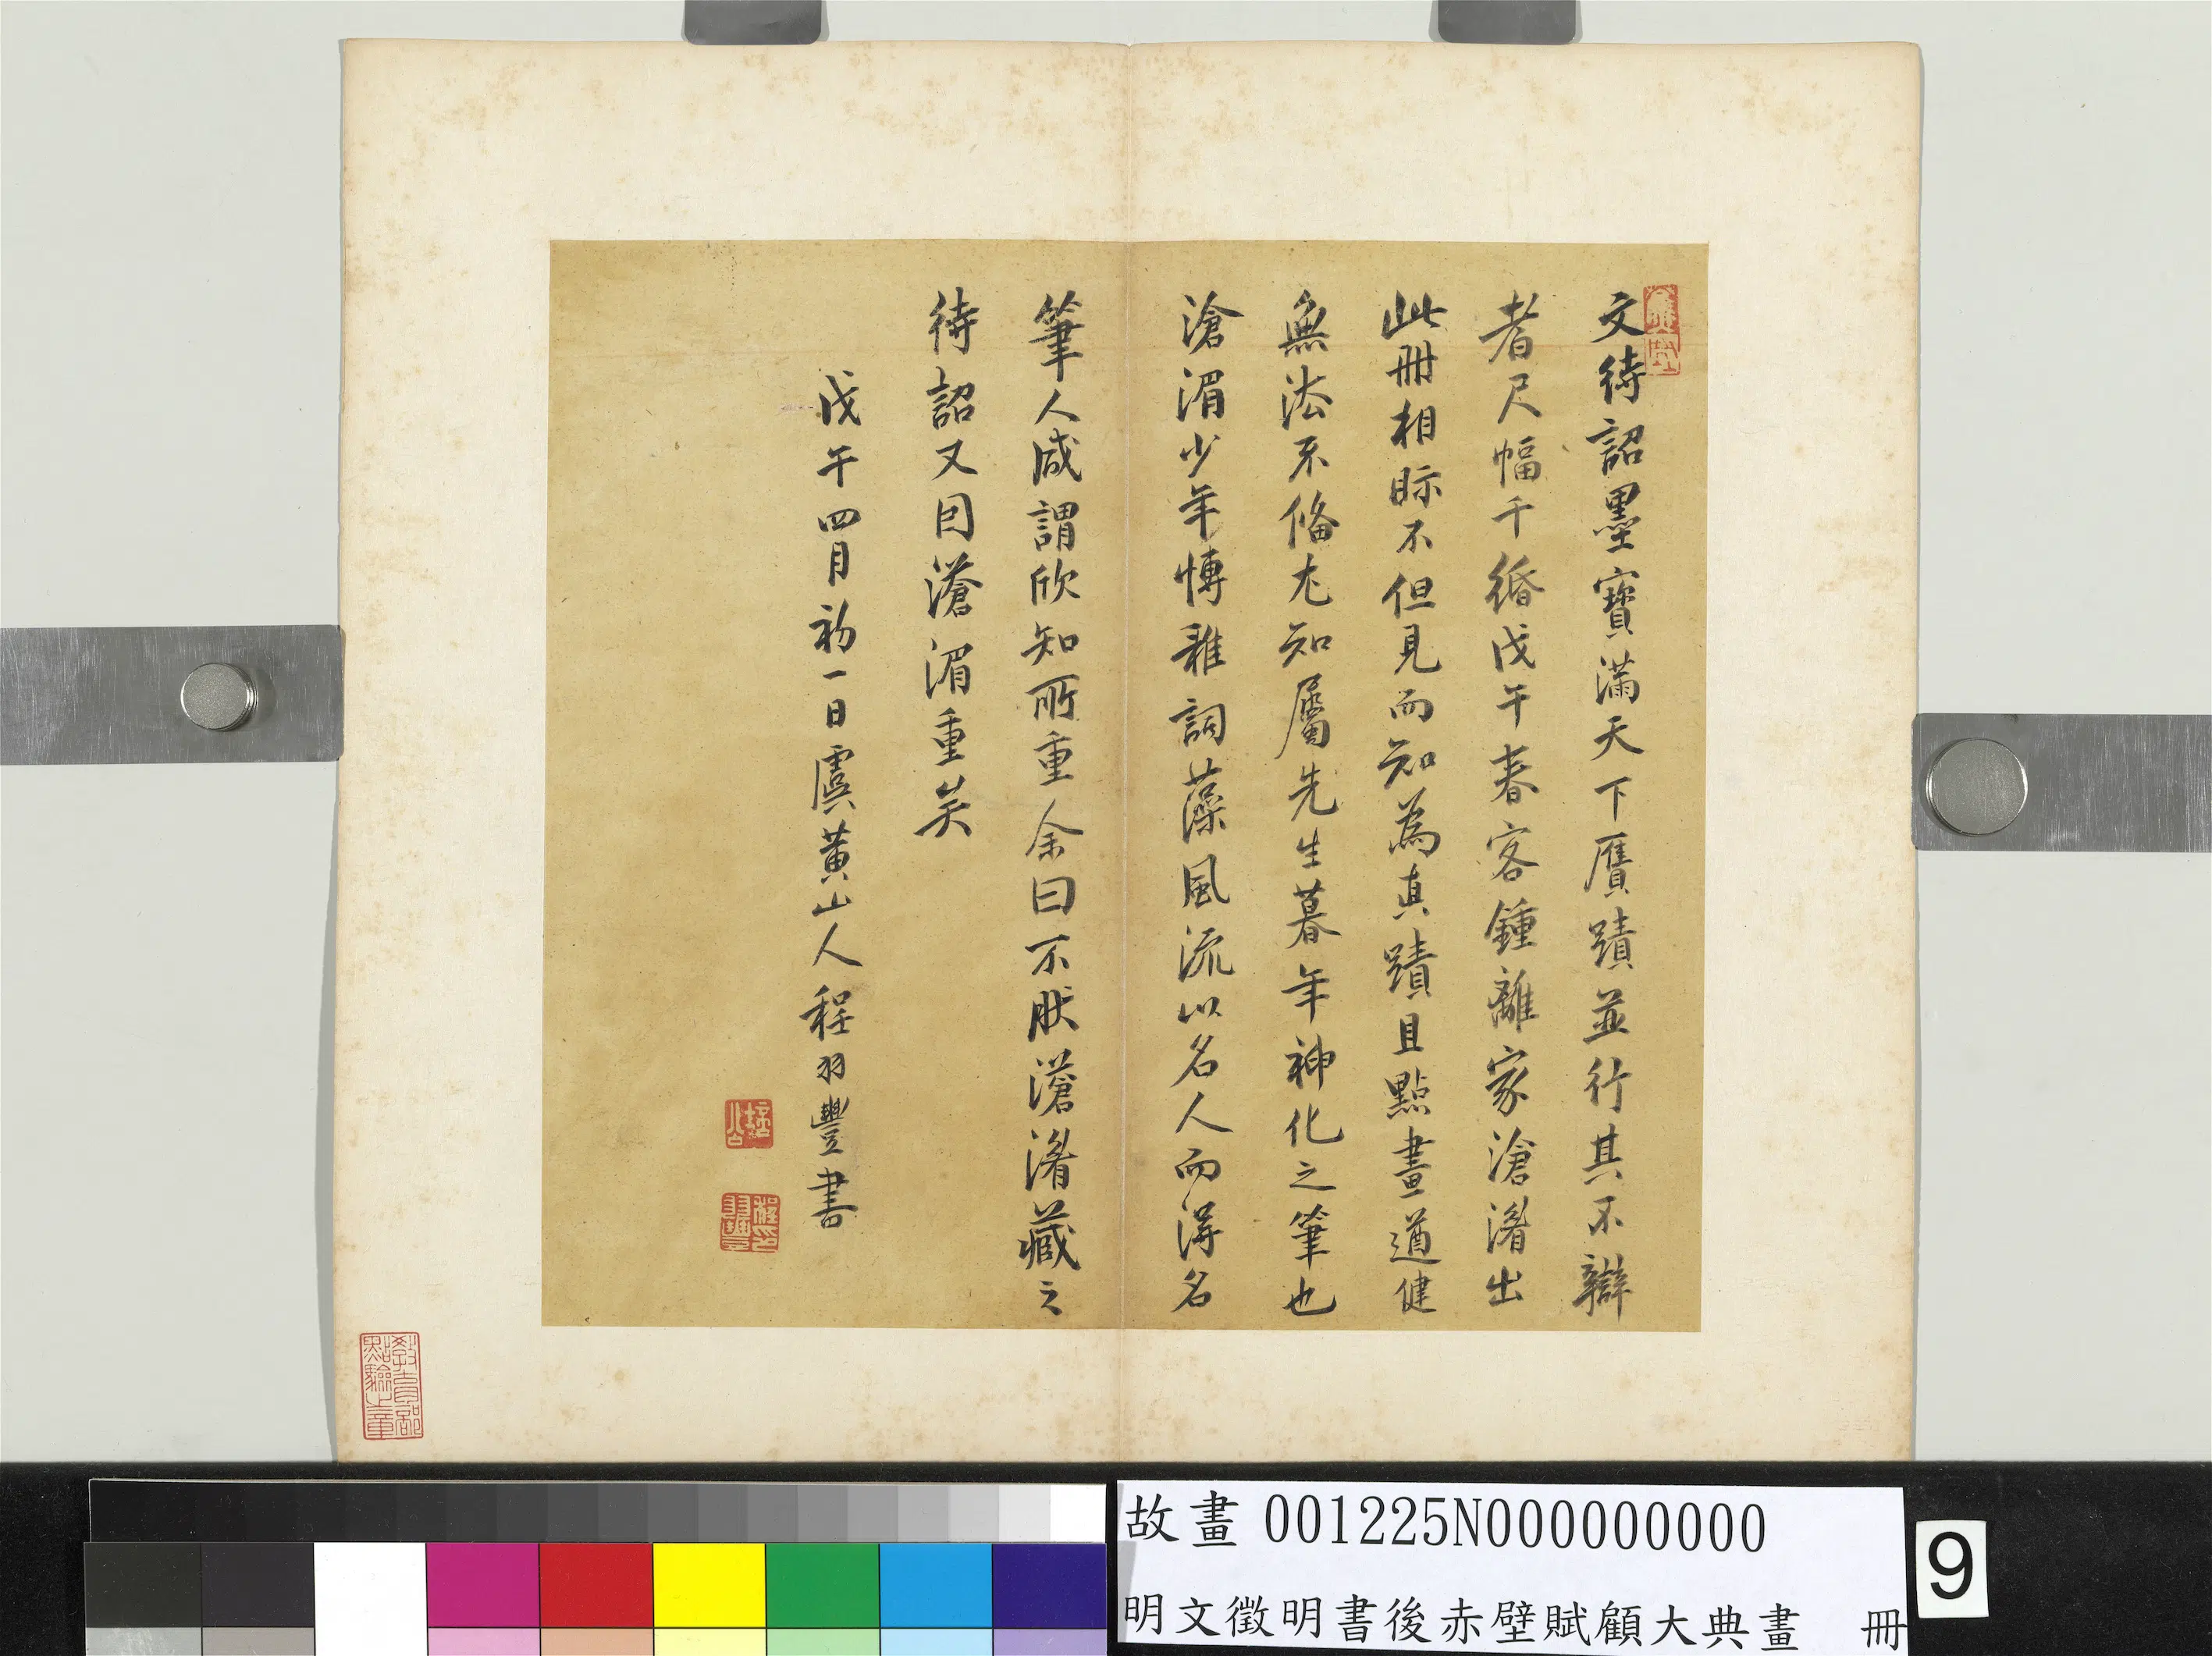 文待詔墨寶滿天下贋蹟並行其不辯
者尺幅千緡戊午春客鍾離家滄湄出
此冊相眎不但見而知為真蹟且點畫遒健
無法不備尤知屬先生暮年神化之筆也
滄湄少年博雅詞藻風流以名人而得名
筆人咸謂欣知所重余曰不然滄湄藏之
待詔又因滄湄重矣
戊午四月初一日虞黃山人程羽豐書
程羽豐印
教育部點驗之章
故畫 001225N000000000
明文徵明書後赤壁賦顧大典畫 冊
9